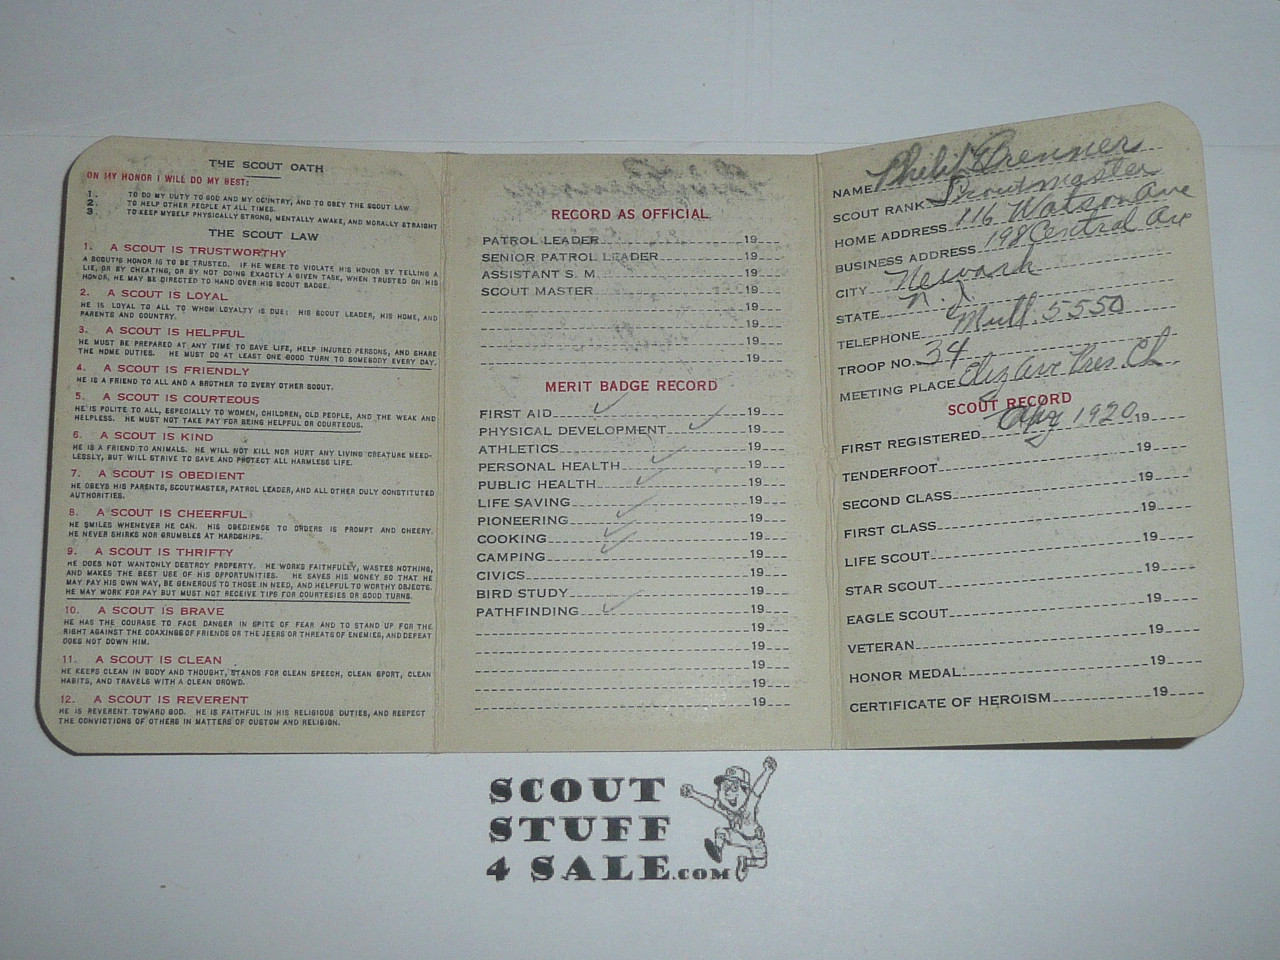 THE SCOUT OATH
ON MY HONOR I WILL DO MY BEST:
1. TO DO MY DUTY TO GOD AND MY COUNTRY, AND TO OBEY THE SCOUT LAW.
2. TO HELP OTHER PEOPLE AT ALL TIMES.
3. TO KEEP MYSELF PHYSICALLY STRONG, MENTALLY AWAKE, AND MORALLY STRAIGHT
THE SCOUT LAW
1. A SCOUT IS TRUSTWORTHY
A SCOUT'S HONOR IS TO BE TRUSTED. IF HE WERE TO VIOLATE HIS HONOR BY TELLING A
LIE, OR BY CHEATING, OR BY NOT DOING EXACTLY A GIVEN TASK, WHEN TRUSTED ON HIS
HONOR, HE MAY BE DIRECTED TO HAND OVER HIS SCOUT BADGE.
2. A SCOUT IS LOYAL
HE IS LOYAL TO ALL TO WHOM LOYALTY IS DUE: HIS SCOUT LEADER, HIS HOME, AND
PARENTS AND COUNTRY.
3. A SCOUT IS HELPFUL
HE MUST BE PREPARED AT ANY TIME TO SAVE LIFE, HELP INJURED PERSONS, AND SHARE
THE HOME DUTIES. HE MUST DO AT LEAST ONE GOOD TURN TO SOMEBODY EVERY DAY.
4. A SCOUT IS FRIENDLY
HE IS A FRIEND TO ALL AND A BROTHER TO EVERY OTHER SCOUT.
5. A SCOUT IS COURTEOUS
HE IS POLITE TO ALL, ESPECIALLY TO WOMEN, CHILDREN, OLD PEOPLE, AND THE WEAK AND
HELPLESS. HE MUST NOT TAKE PAY FOR BEING HELPFUL OR COURTEOUS.
6. A SCOUT IS KIND
HE IS A FRIEND TO ANIMALS. HE WILL NOT KILL NOR HURT ANY LIVING CREATURE NEED-
LESSLY, BUT WILL STRIVE TO SAVE AND PROTECT ALL HARMLESS LIFE.
7. A SCOUT IS OBEDIENT
HE OBEYS HIS PARENTS, SCOUTMASTER, PATROL LEADER, AND ALL OTHER DULY CONSTITUTED
AUTHORITIES.
8. A SCOUT IS CHEERFUL
HE SMILES WHENEVER HE CAN. HIS OBEDIENCE TO ORDERS IS PROMPT AND CHEERY.
HE NEVER SHIRKS NOR GRUMBLES AT HARDSHIPS.
9. A SCOUT IS THRIFTY
HE DOES NOT WANTONLY DESTROY PROPERTY. HE WORKS FAITHFULLY, WASTES NOTHING,
AND MAKES THE BEST USE OF HIS OPPORTUNITIES. HE SAVES HIS MONEY SO THAT HE
MAY PAY HIS OWN WAY, BE GENEROUS TO THOSE IN NEED, AND HELPFUL TO WORTHY OBJECTS.
HE MAY WORK FOR PAY BUT MUST NOT RECEIVE TIPS FOR COURTESIES OR GOOD TURNS.
10. A SCOUT IS BRAVE
HE HAS THE COURAGE TO FACE DANGER IN SPITE OF FEAR AND TO STAND UP FOR THE
RIGHT AGAINST THE COAXINGS OF FRIENDS OR THE JEERS OR THREATS OF ENEMIES, AND DEFEAT
DOES NOT DOWN HIM.
11. A SCOUT IS CLEAN
HE KEEPS CLEAN IN BODY AND THOUGHT, STANDS FOR CLEAN SPEECH, CLEAN SPORT, CLEAN
HABITS, AND TRAVELS WITH A CLEAN CROWD.
12. A SCOUT IS REVERENT
HE IS REVERENT TOWARD GOD. HE IS FAITHFUL IN HIS RELIGIOUS DUTIES, AND RESPECT
THE CONVICTIONS OF OTHERS IN MATTERS OF CUSTOM AND RELIGION.
RECORD AS OFFICIAL
PATROL LEADER 19
SENIOR PATROL LEADER 19
ASSISTANT S. M. 19
SCOUT MASTER 19
19
19
19
19
MERIT BADGE RECORD
FIRST AID ✓ 19
PHYSICAL DEVELOPMENT ✓ 19
ATHLETICS 19
PERSONAL HEALTH ✓ 19
PUBLIC HEALTH ✓ 19
LIFE SAVING 19
PIONEERING ✓ 19
COOKING ✓ 19
CAMPING ✓ 19
CIVICS 19
BIRD STUDY 19
PATHFINDING ✓ 19
19
19
19
19
19
NAME Philip Drenner
SCOUT RANK Scoutmaster
HOME ADDRESS 116 Watson Ave
BUSINESS ADDRESS 198 Central Ave
CITY Newark
STATE N.J.
TELEPHONE Mull. 5550
TROOP NO. 34
MEETING PLACE Eliz Ave Pres. Ch
SCOUT RECORD
FIRST REGISTERED 1920 19
TENDERFOOT 19
SECOND CLASS 19
FIRST CLASS 19
LIFE SCOUT 19
STAR SCOUT 19
EAGLE SCOUT 19
VETERAN 19
HONOR MEDAL 19
CERTIFICATE OF HEROISM 19
SCOUT
STUFF
4 SALE.COM